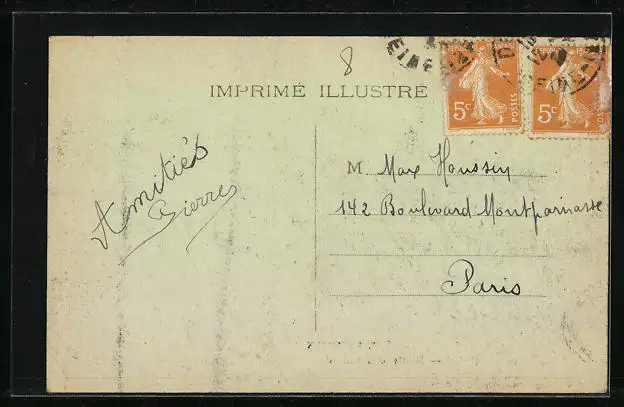 8
IMPRIMÉ ILLUSTRÉ
5c POSTES
5c POSTES
Amitiés
Pierre
M Max Houssin
142 Boulevard Montparnasse
Paris